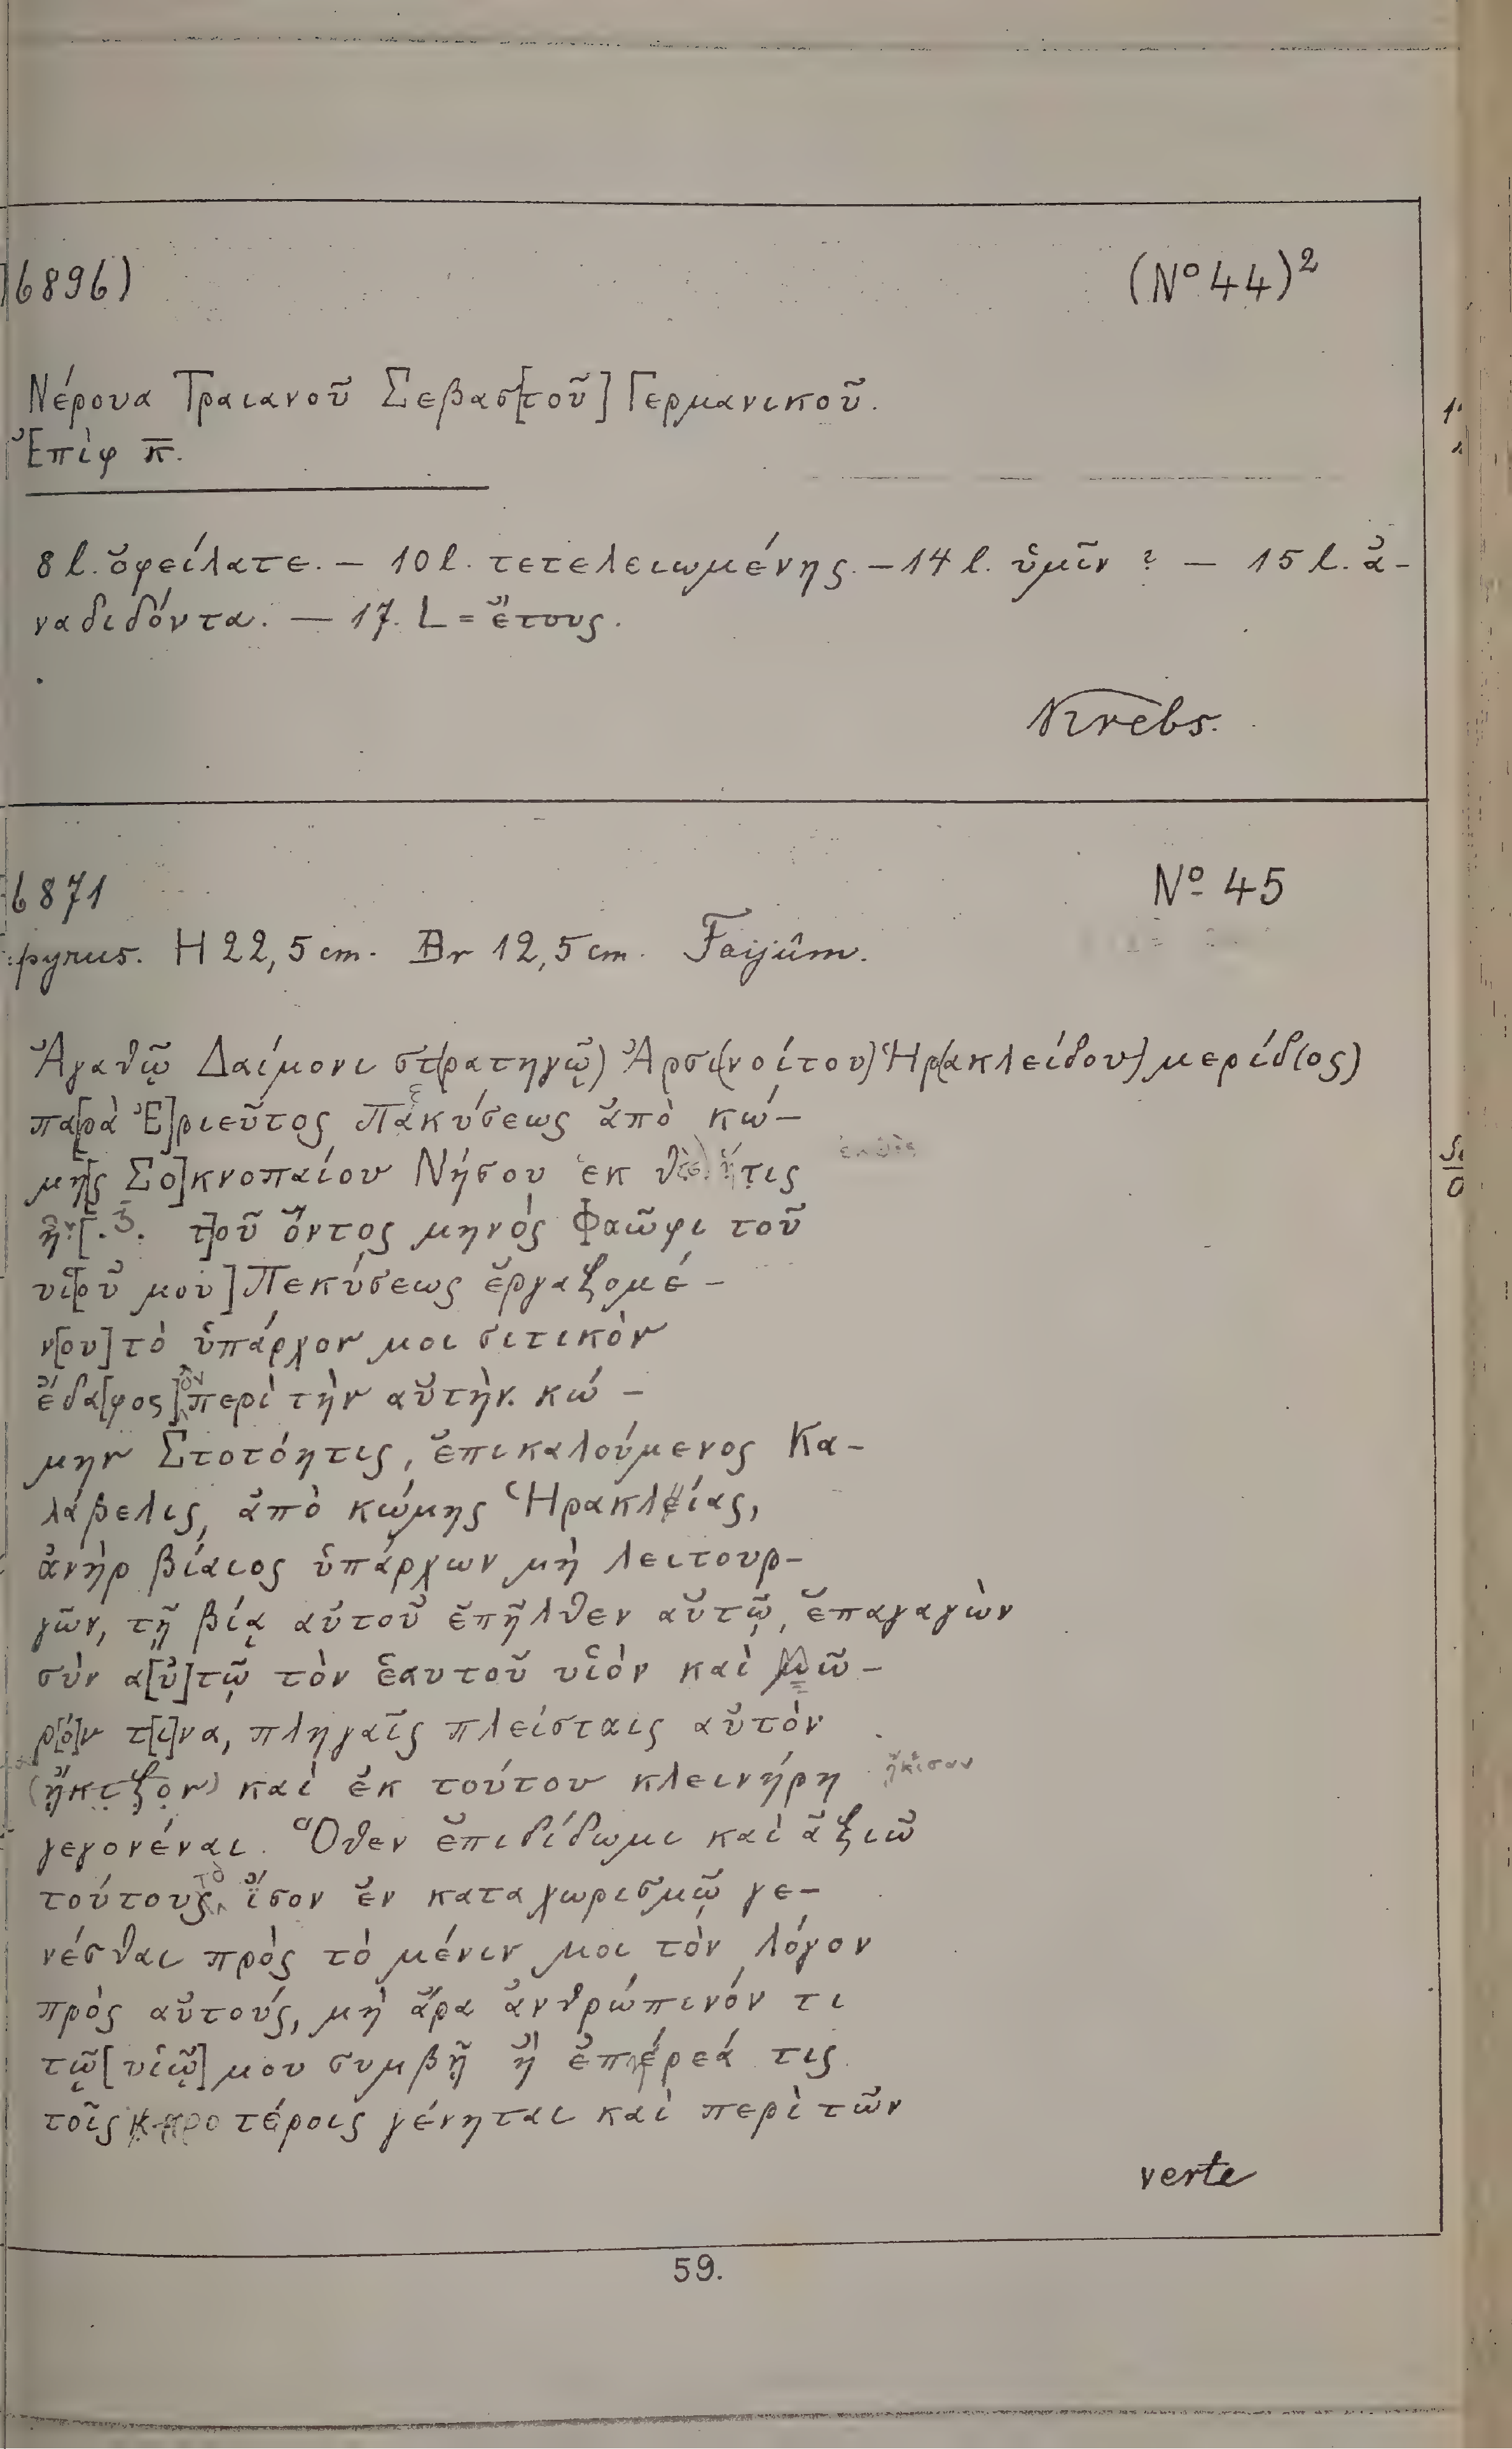 6896) (Nº 44)²
Νέρουα Τραιανοῦ Σεβασ[τοῦ] Γερμανικοῦ.
Ἐπὶφ κ̅.
8 l. ὀφείλατε. — 10 l. τετελειωμένης. — 14 l. ὑμῖν ? — 15 l. ἀ-
ναδιδόντα. — 17. L = ἔτους.
Krebs.
6871 Nº 45
pyrus. H 22,5 cm. Br 12,5 cm. Faijûm.
Ἀγαθῷ Δαίμονι στ(ρατηγῷ) Ἀρσι(νοίτου) Ἡρ(ακλείδου) μερίδ(ος)
πα[ρὰ Ἑ]ριεῦτος Πακύσεως ἀπὸ κώ-
μη[ς Σο]κνοπαίου Νήσου ἐκ
τ]οῦ ὄντος μηνὸς Φαῶφι τοῦ
υἱ[οῦ μου] Πεκύσεως ἐργαζομέ-
ν[ου] τὸ ὑπάρχον μοι σιτικὸν
ἔδα[φος] ὃν περὶ τὴν αὐτὴν κώ-
μην Στοτόητις, ἐπικαλούμενος Κα-
λάβελις, ἀπὸ κώμης Ἡρακλείας,
ἀνὴρ βίαιος ὑπάρχων μὴ λειτουρ-
γῶν, τῇ βίᾳ αὐτοῦ ἐπῆλθεν αὐτῷ, ἐπαγαγὼν
σὺν α[ὐ]τῷ τὸν ἑαυτοῦ υἱὸν καὶ Μῶ-
ρ[ό]ν τ[ι]να, πληγαῖς πλείσταις αὐτὸν
(ᾔκιζον) καὶ ἐκ τούτου κλεινήρη ᾔκισαν
γεγονέναι. Ὅθεν ἐπιδίδωμι καὶ ἀξιῶ
τούτους τὸ ἴσον ἐν καταχωρισμῷ γε-
νέσθαι πρὸς τὸ μένιν μοι τὸν λόγον
πρὸς αὐτούς, μὴ ἄρα ἀνθρώπινόν τι
τῷ [υἱῷ] μου συμβῇ ἢ ἐπηέρεά τις
τοῖς τέροις γένηται καὶ περὶ τῶν
verte
59.